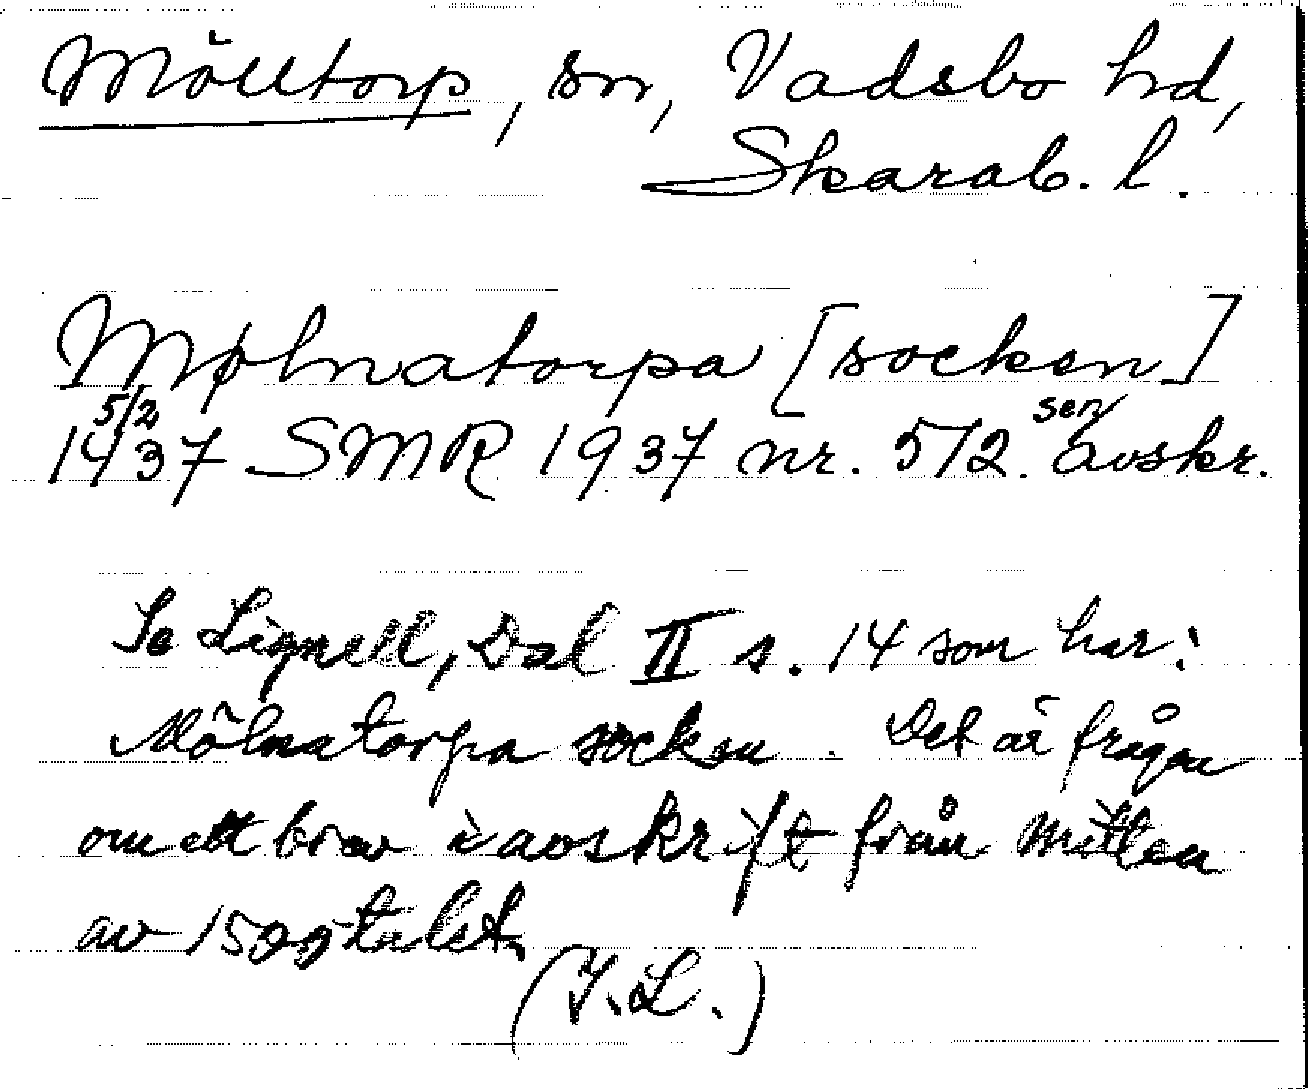 Mölltorp, sn, Vadsbo hd,
Skarab. l.
Mølnatorpa [socken]
5/2 1437 SMR 1937 nr. 572. sen avskr.
Se Lignell, Dal II s. 14 som har:
Mölnatorpa socken. Det är frågan
om ett brev i avskrift från mitten
av 1500 talet.
(I. L.)